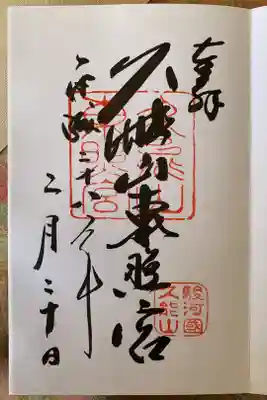 奉拝
久能山東照宮
平成二十八年
二月二十日
駿河國
久能山